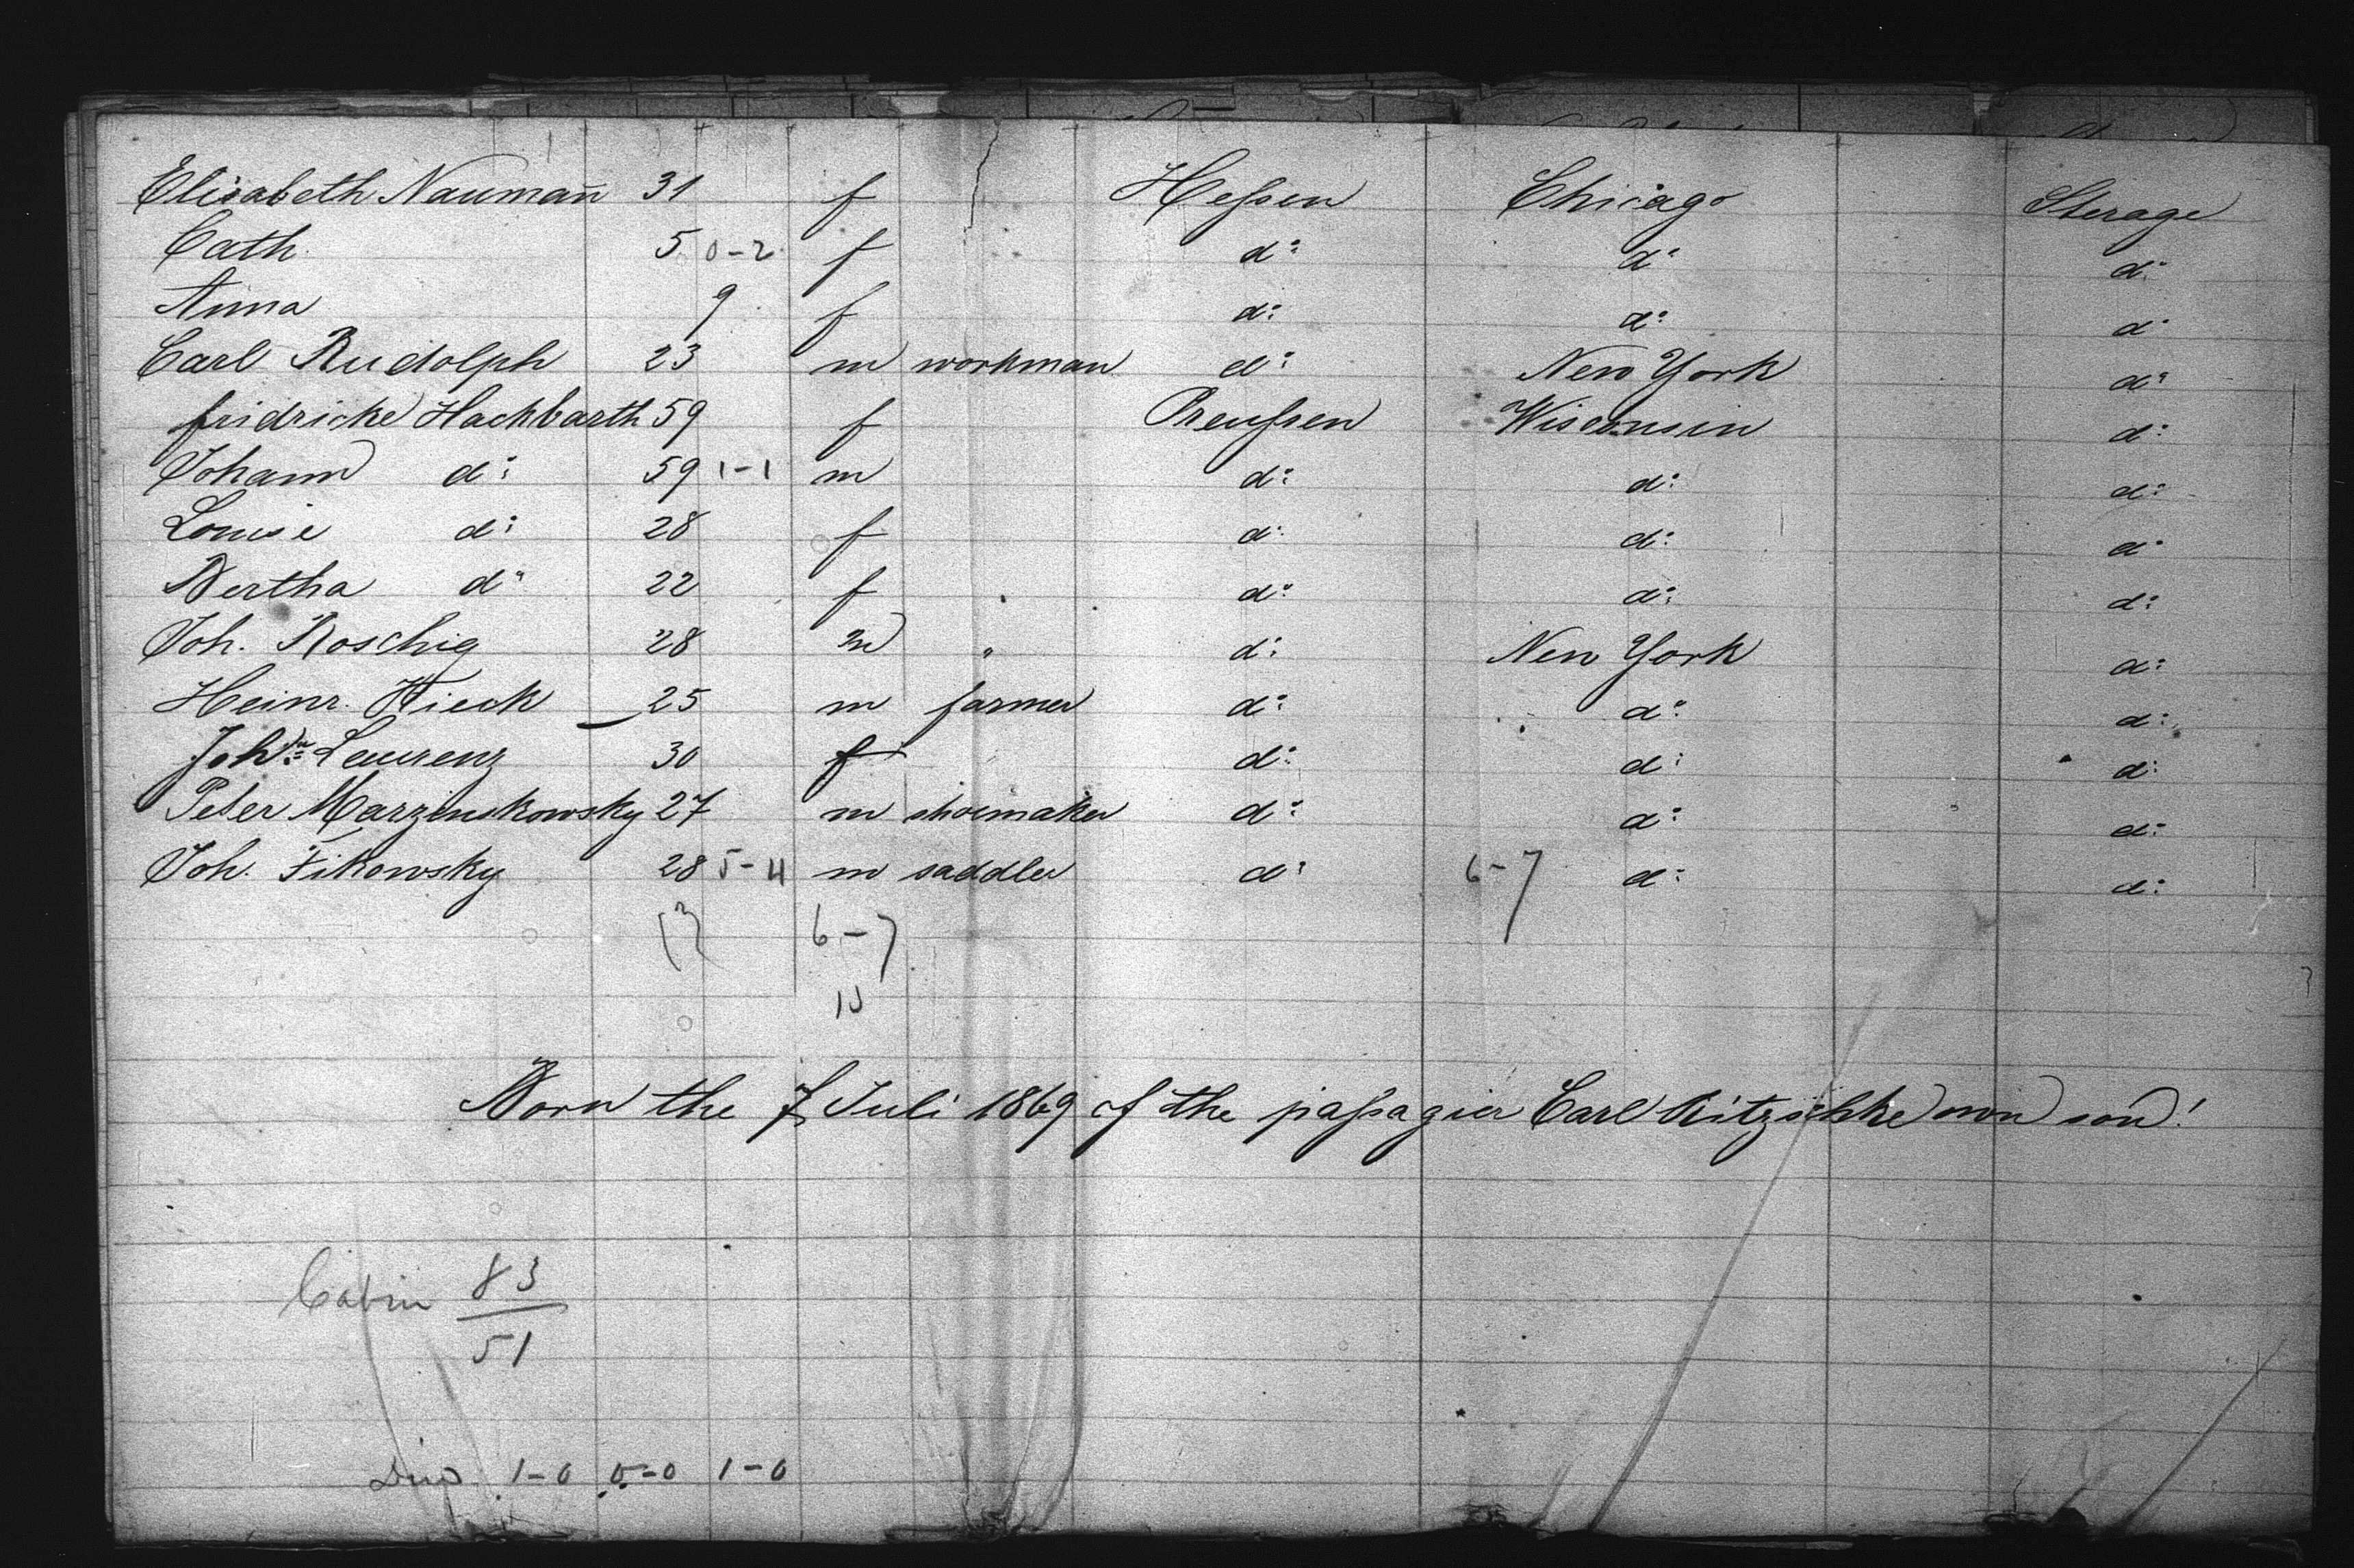 Elisabeth Nauman̄ 31 f Hessen Chicago Sterage
Cath. 5 0-2 f do: do: do:
Anna 9 f do: do: do
Carl Rudolph 23 m workman do: New York do:
fridricke Hackbarth 59 f Preussen Wisconsin do:
Johann do: 59 1-1 m do: do: do:
Louise do: 28 f do: do: do
Bertha do 22 f do: do: do:
Joh. Roschig 28 m " do: New York do:
Heinr. Wieck 25 m farmer do: do: do:
Joh. Laurenz 30 f do: do: do:
Peter Marzinskowsky 27 m shoemaker do: do: do:
Joh. Fikowsky 28 5-4 m saddler do: 6-7 do: do:
13 6-7
Born the 7 Juli 1869 of the passagier Carl Kitzschke son!
Cabin 83
51
1-0 0-0 1-0